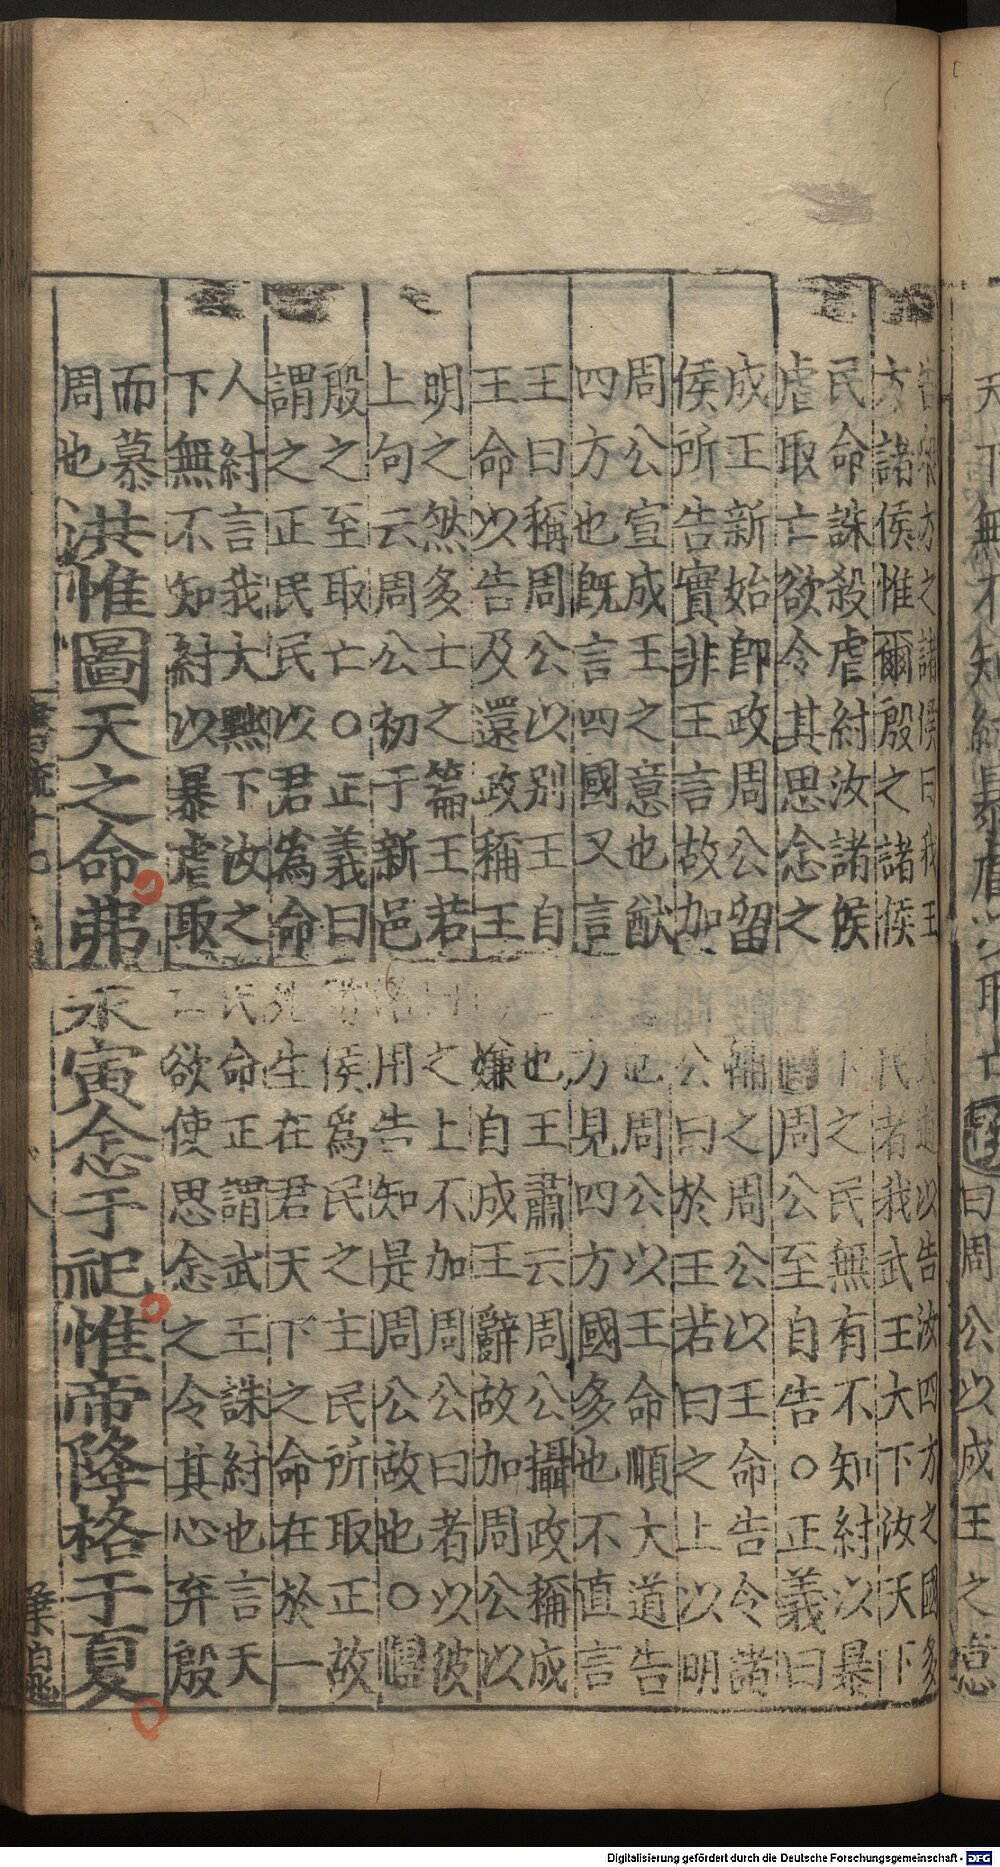 天下無不知紂暴虐以取亡 曰周公以成王之意
告眾方之諸侯曰我王 以告汝四方之國多
方諸侯惟爾殷之諸侯 民者我武王大下汝天下
民命誅殺虐紂汝諸侯 下之民無有不知紂以暴
虐取亡欲令其思念之 周公至自告○正義曰
成王新始即政周公留 輔之周公以王命告令諸
侯所告實非王言故加 公曰於王若曰之上以明
周公宣成王之意也猷 也周公以王命順大道告
四方也旣言四國又言 方見四方國多也不直言
王曰稱周公以別王自 也王肅云周公攝政稱成
王命以告及還政稱王 嫌自成王辭故加周公以
明之然多士之篇王若 曰之上不加周公曰者以彼
上句云周公初于新邑 洛用告知是周公故也○傳
殷之至取亡○正義曰 諸侯爲民之主民所取正故
謂之正民民以君為命 死生在君天下之命在於一
人紂言我大黜下汝之 民命正謂武王誅紂也言天
下無不知紂以暴虐取 亡欲使思念之令其心弃殷
而慕
周也
洪惟圖天之命弗永寅念于祀惟帝降格于夏
Digitalisierung gefördert durch die Deutsche Forschungsgemeinschaft - DFG